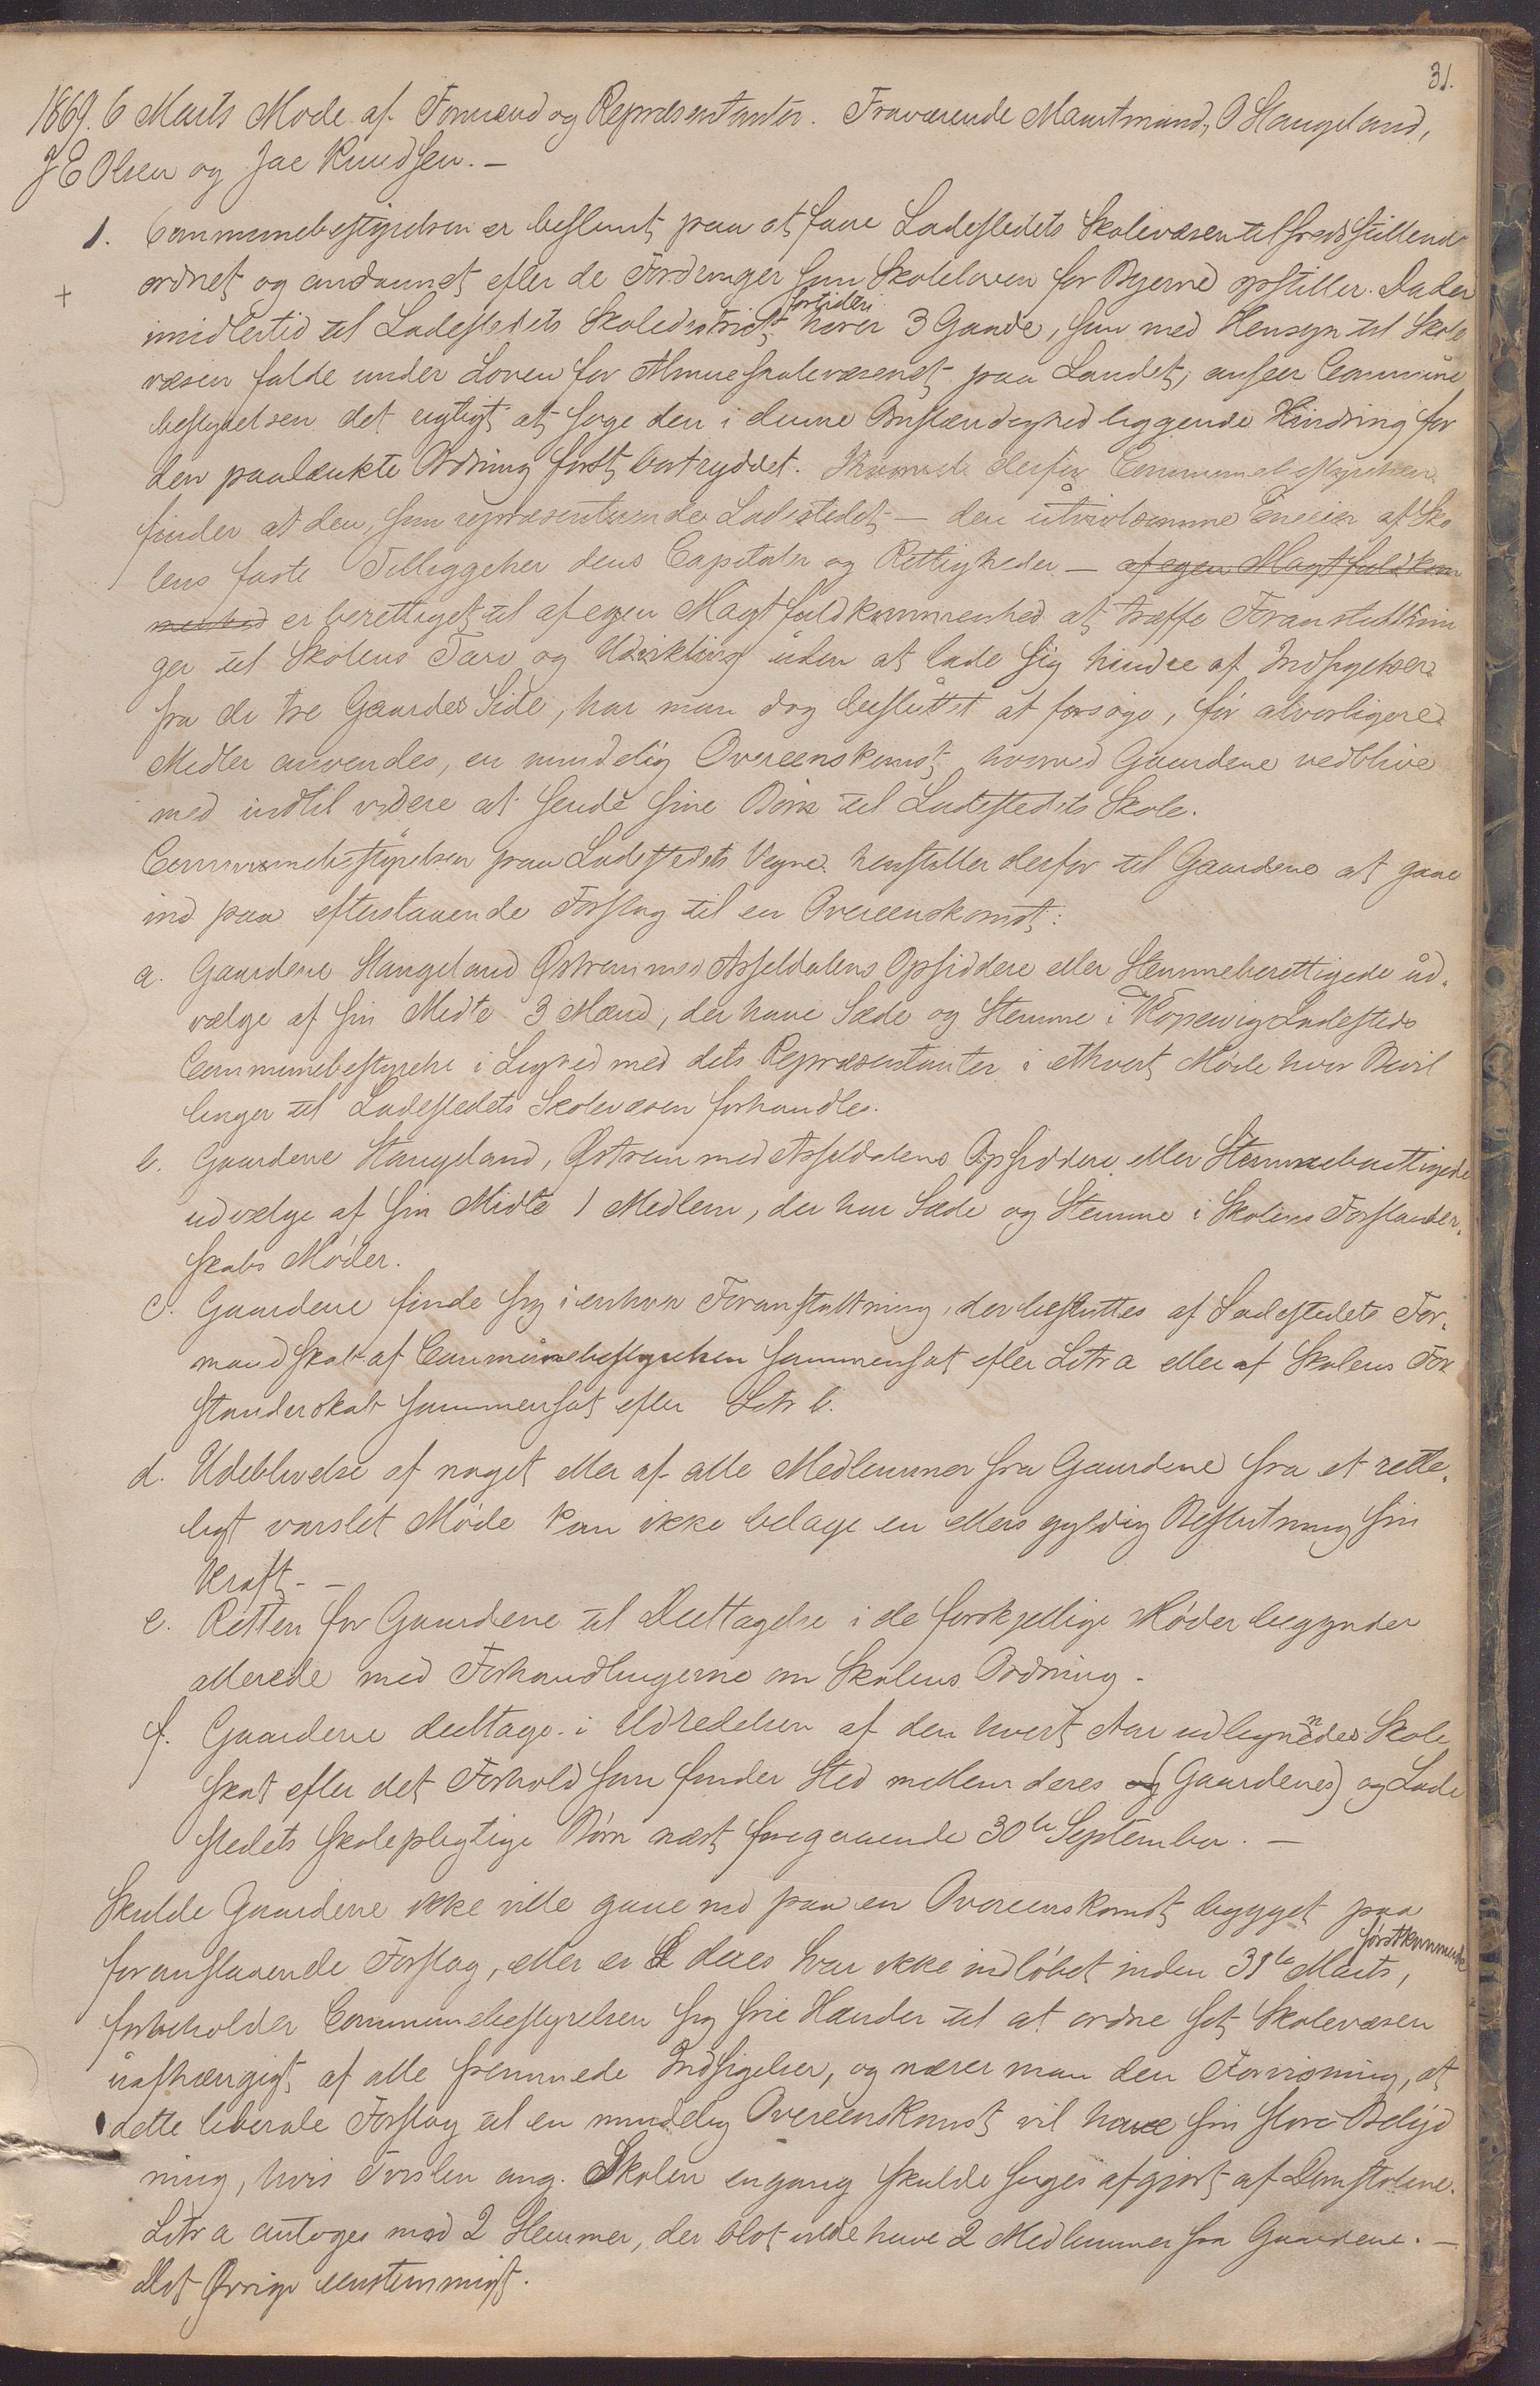 31.
1869. 6 Marts Møde af Formænd og Repræsentanter. Fraværende Maurtmand, O Stangeland,
J E Olsen og Jac Knudsen. –
1. Communebestyrelsen er bestemt paa at faae Ladestedets Skolevæsen tilfredsstillende
+ ordnet og omdannet efter de Fordringer som Skoleloven for Byerne opstiller. Da der
fortiden
imidlertid til Ladestedets Skoledistrict hører 3 Gaarde, som med Hensyn til Skole
væsen falde under Loven for Almueskolevæsenet paa Landet, anseer Commune
bestyrelsen det rigtigt at søge den i denne Omstændighed liggende Hindring for
den paatænkte Ordning først bortryddet. derfor Communebestyrelsen
finder at den, som repræsenterende Ladestedet – den utvivlsomme Eneeier af Sko
lens faste Tilliggelser dens Capitaler og Rettigheder – af egen Magtfuldkom
menhed er berettiget til af egen Magtfuldkommenhed at træffe Foranstaltnin
ger til Skolens Tarv og Udvikling uden at lade sig hindre af Indsigelser
fra de tre Gaardes Side, har man dog besluttet at forsøge, før alvorligere
Midler anvendes, en mindelig Overeenskomst, hvorved Gaardene vedblive
med indtil videre at sende sine Børn til Ladestedets Skole.
Communebestyrelsen paa Ladestedets Vegne henstiller derfor til Gaardene at gaae
ind paa efterstaaende Forslag til en Overeenskomst:
a. Gaardene Stangeland Østrem med Asseldalens Opsiddere eller Stemmeberettigede ud-
vælge af sin Midte 3 Mænd, der have Sæde og Stemme i Kopervig Ladesteds
Communebestyrelse i Lighed med dets Repræsentanter i ethvert Møde hvor Bevil
linger til Ladestedets Skolevæsen forhandles.
b. Gaardene Stangeland, Østrem med Asseldalens Opsiddere eller Stemmeberettigede
udvælge af sin Midte 1 Medlem, der har Sæde og Stemme i Skolens Forstander-
skabs Møder.
c. Gaardene finde sig i enhver Foranstaltning, der besluttes af Ladestedets For-
mandskab af Communebestyrelsen sammensat efter Litr a eller af Skolens For
standerskab sammensat efter Litr b.
d. Udeblivelse af noget eller af alle Medlemmer fra Gaardene fra et rette-
ligt varslet Møde kan ikke betage en ellers gyldig Beslutning sin
Kraft. –
e. Retten for Gaardene til Deeltagelse i de forskjellige Møder begynder
allerede med Forhandlingerne om Skolens Ordning.
f. Gaardene deeltage i Udredelsen af den hvert Aar udlignende Skole
skat efter det Forhold som finder Sted mellem deres og (Gaardenes) og Lade
stedets skolepligtige Børn næst foregaaende 30te September. –
Skulde Gaardene ikke ville gaae ind paa en Overeenskomst bygget paa
førstkommende
foranstaaende Forslag, eller er deres Svar ikke indløbet inden 31te Marts,
forbeholder Communebestyrelsen sig frie Hænder til at ordne sit Skolevæsen
uafhængigt af alle fremmede Indsigelser, og nærer man den Forvisning, at
dette liberale Forslag til en mindelig Overeenskomst vil have sin store Betyd
ning, hvis Tvisten ang. Skolen engang skulde søges afgjort af Domstolene.
Litr a antoges mod 2 Stemmer, der blot vilde have 2 Medlemmer fra Gaardene. –
Det Øvrige eenstemmigt.